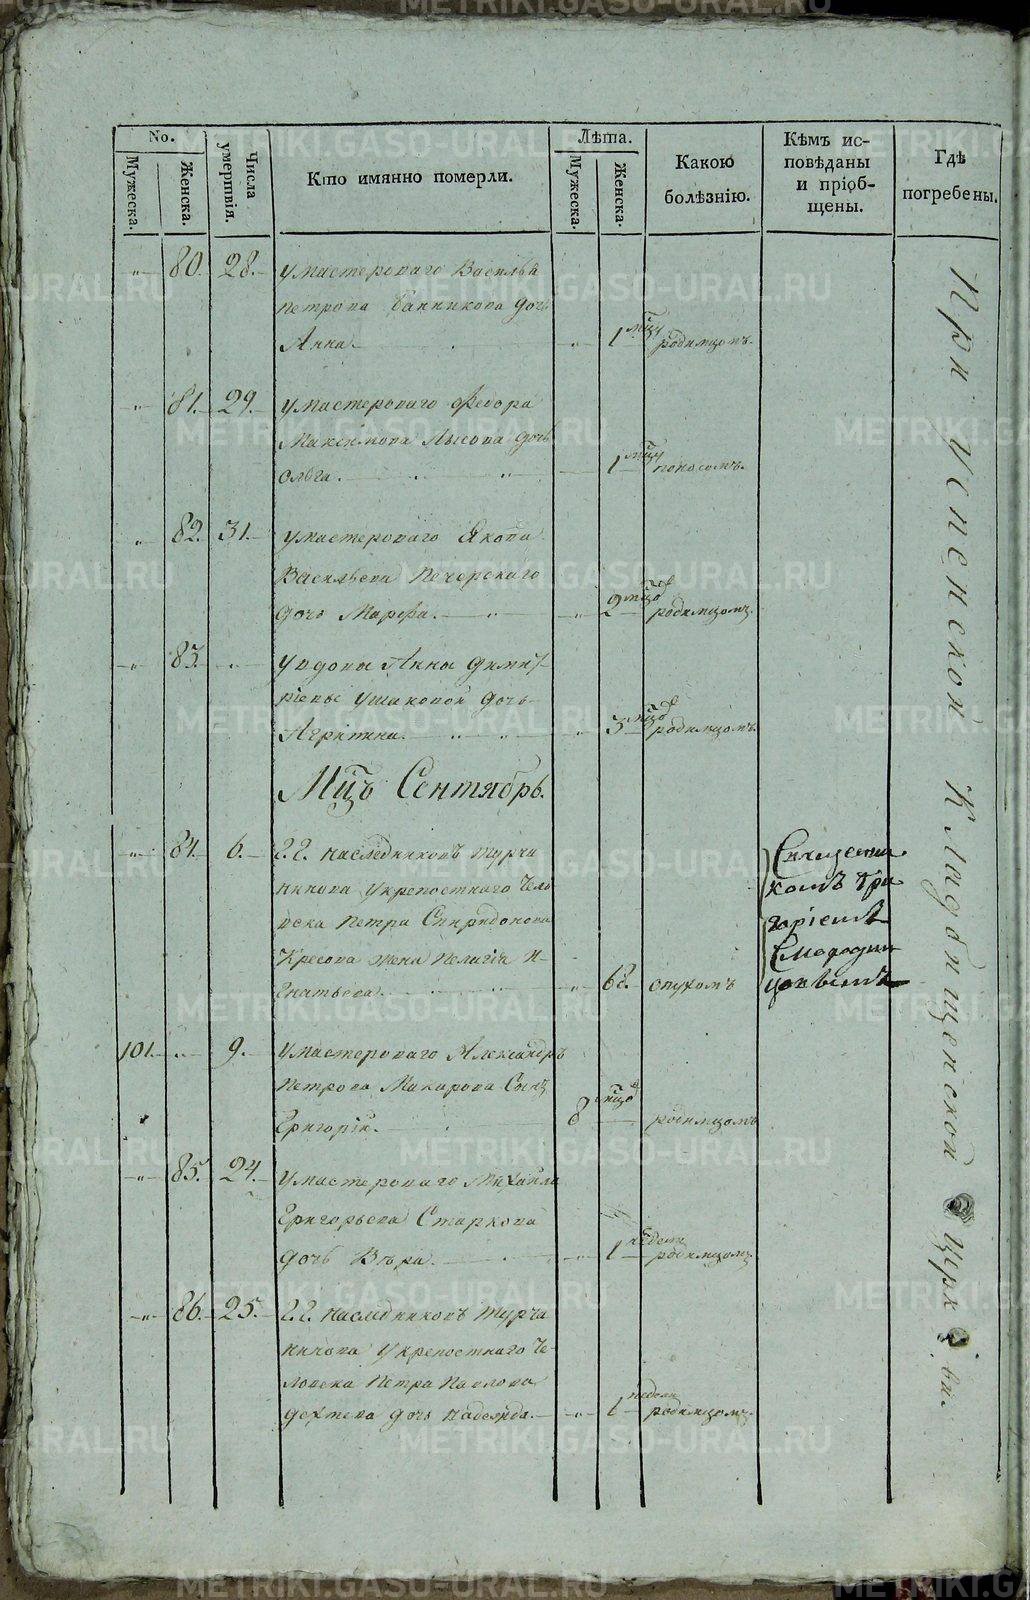 No.
Мужеска.
Женска.
Числа умертвія.
Кто имянно померли.
Лѣта.
Мужеска.
Женска.
Какою болѣзнію.
Кѣмъ ис-
повѣданы
и пріоб-
щены.
Гдѣ
погребены.
80. 28. умастероваго Василья
Петрова Банникова дочь
Анна. 1 мцу родимцомъ.
81. 29. умастероваго Федора
Максимова Лысова дочь
Ольга. 1 мцу поносомъ.
82. 31. умастероваго Якова
Васильева Печерскаго
дочь Марфа. 2 мцов родимцомъ.
83. увдовы Анны Димит-
ріевы Ушаковой дочь
Агрипина. 3 мцов родимцомъ.
Мцъ Сентябрь.
84. 6. Г.Г. наслѣдниковъ Турча
нинова укрепостнаго чело
века Петра Спиридонова
Кресова жена Пелагія И-
гнатьева. 62. опухомъ
Священни
комъ Гри
горіемъ
Смородин
цовымъ
101. 9. умастероваго Александръ
Петрова Макарова сынъ
Григорій. 8 мцов родимцомъ
85. 24. умастероваго Михайла
Григорьева Старкова
дочь Вѣра. 1 недели родимцомъ.
86. 25. Г.Г. наслѣдниковъ Турча
нинова укрепостнаго че-
ловека Петра Павлова
дочь Надежда. 1 недели родимцомъ.
При Успенской Кладбищенской Церкви.
METRIKI.GASO-URAL.RU